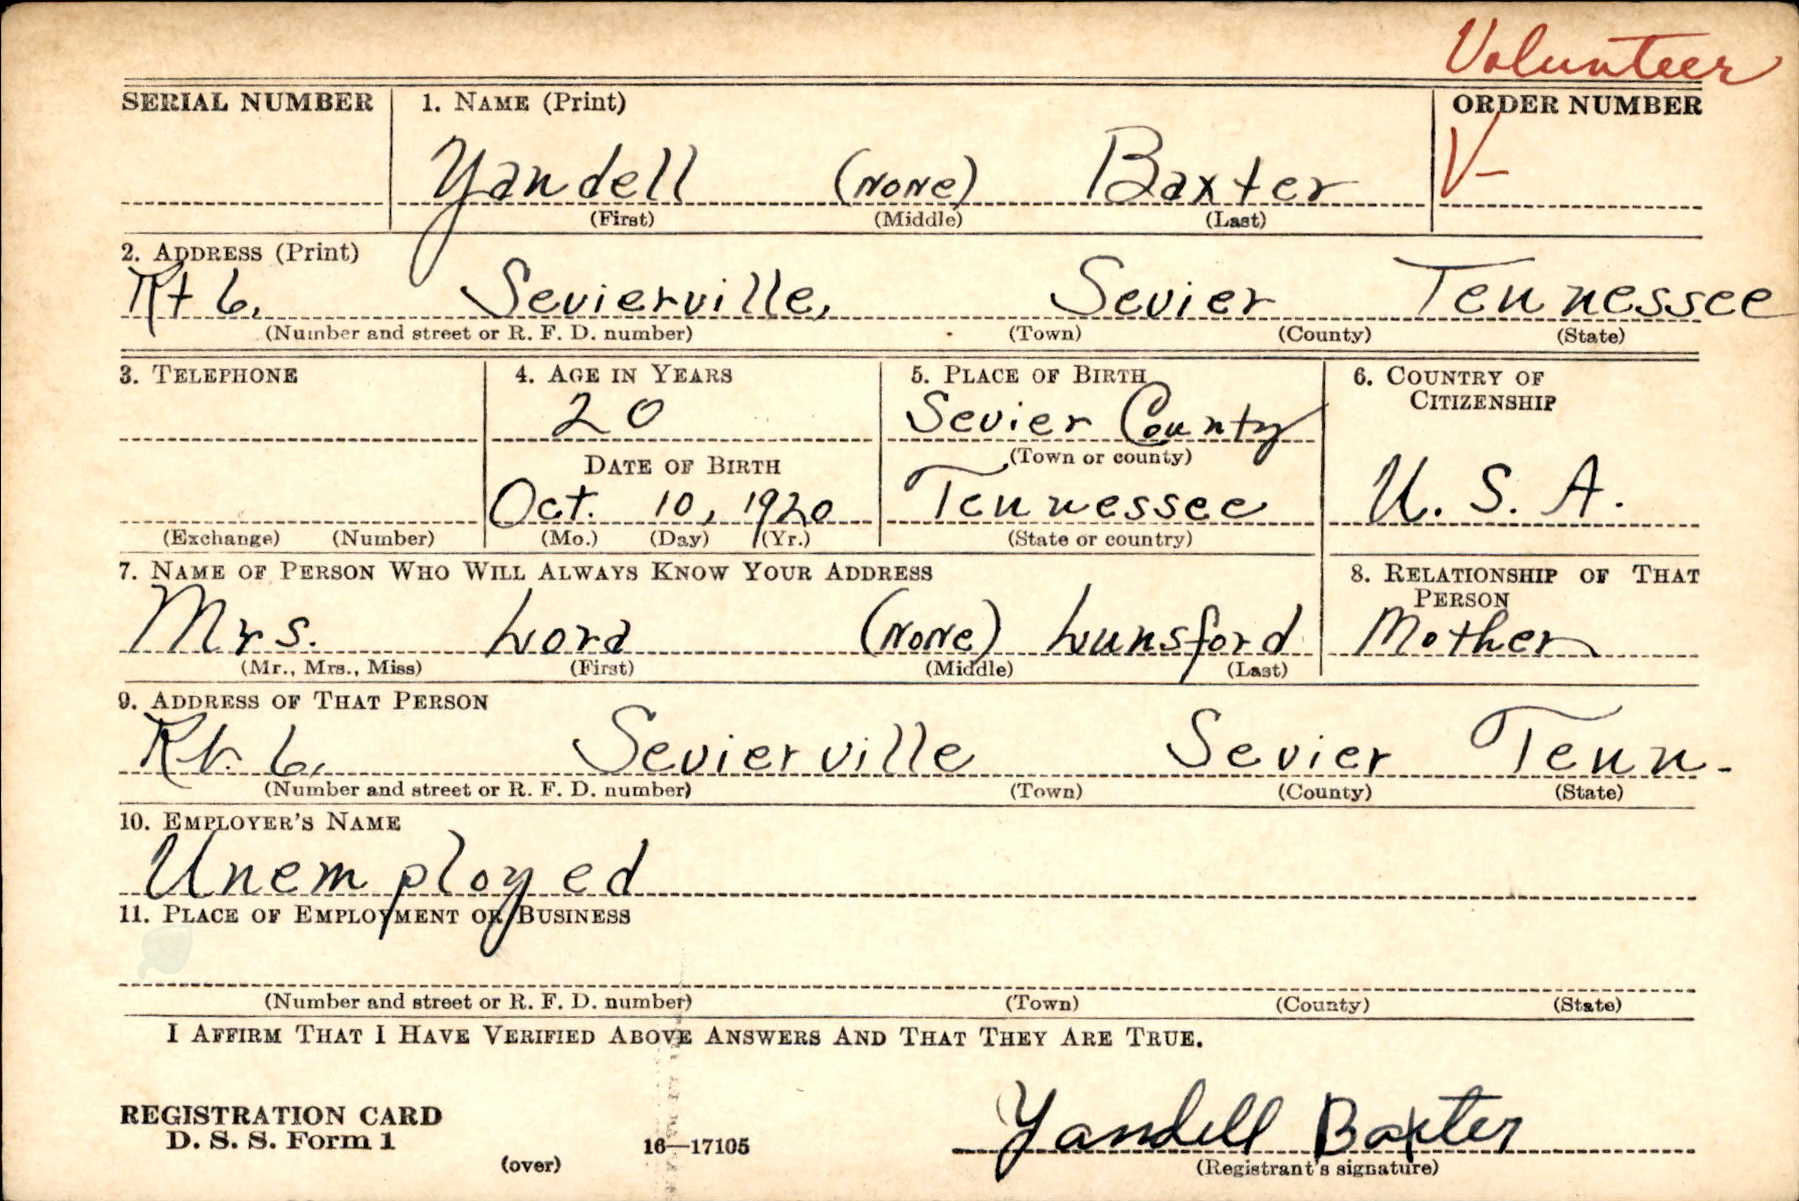 Volunteer
SERIAL NUMBER 1. NAME (Print) ORDER NUMBER
Yandell (NONE) Baxter V-
(First) (Middle) (Last)
2. ADDRESS (Print)
Rt 6, Sevierville, Sevier Tennessee
(Number and street or R. F. D. number) (Town) (County) (State)
3. TELEPHONE 4. AGE IN YEARS 5. PLACE OF BIRTH 6. COUNTRY OF
CITIZENSHIP
20 Sevier County
(Town or county)
DATE OF BIRTH
Oct. 10, 1920 Tennessee U. S. A.
(Exchange) (Number) (Mo.) (Day) (Yr.) (State or country)
7. NAME OF PERSON WHO WILL ALWAYS KNOW YOUR ADDRESS 8. RELATIONSHIP OF THAT
PERSON
Mrs. Lora (NONE) Lunsford Mother
(Mr., Mrs., Miss) (First) (Middle) (Last)
9. ADDRESS OF THAT PERSON
Rt. 6, Sevierville Sevier Tenn.
(Number and street or R. F. D. number) (Town) (County) (State)
10. EMPLOYER'S NAME
Unemployed
11. PLACE OF EMPLOYMENT OR BUSINESS
(Number and street or R. F. D. number) (Town) (County) (State)
I AFFIRM THAT I HAVE VERIFIED ABOVE ANSWERS AND THAT THEY ARE TRUE.
REGISTRATION CARD
D. S. S. Form 1 16—17105 Yandell Baxter
(over) (Registrant's signature)